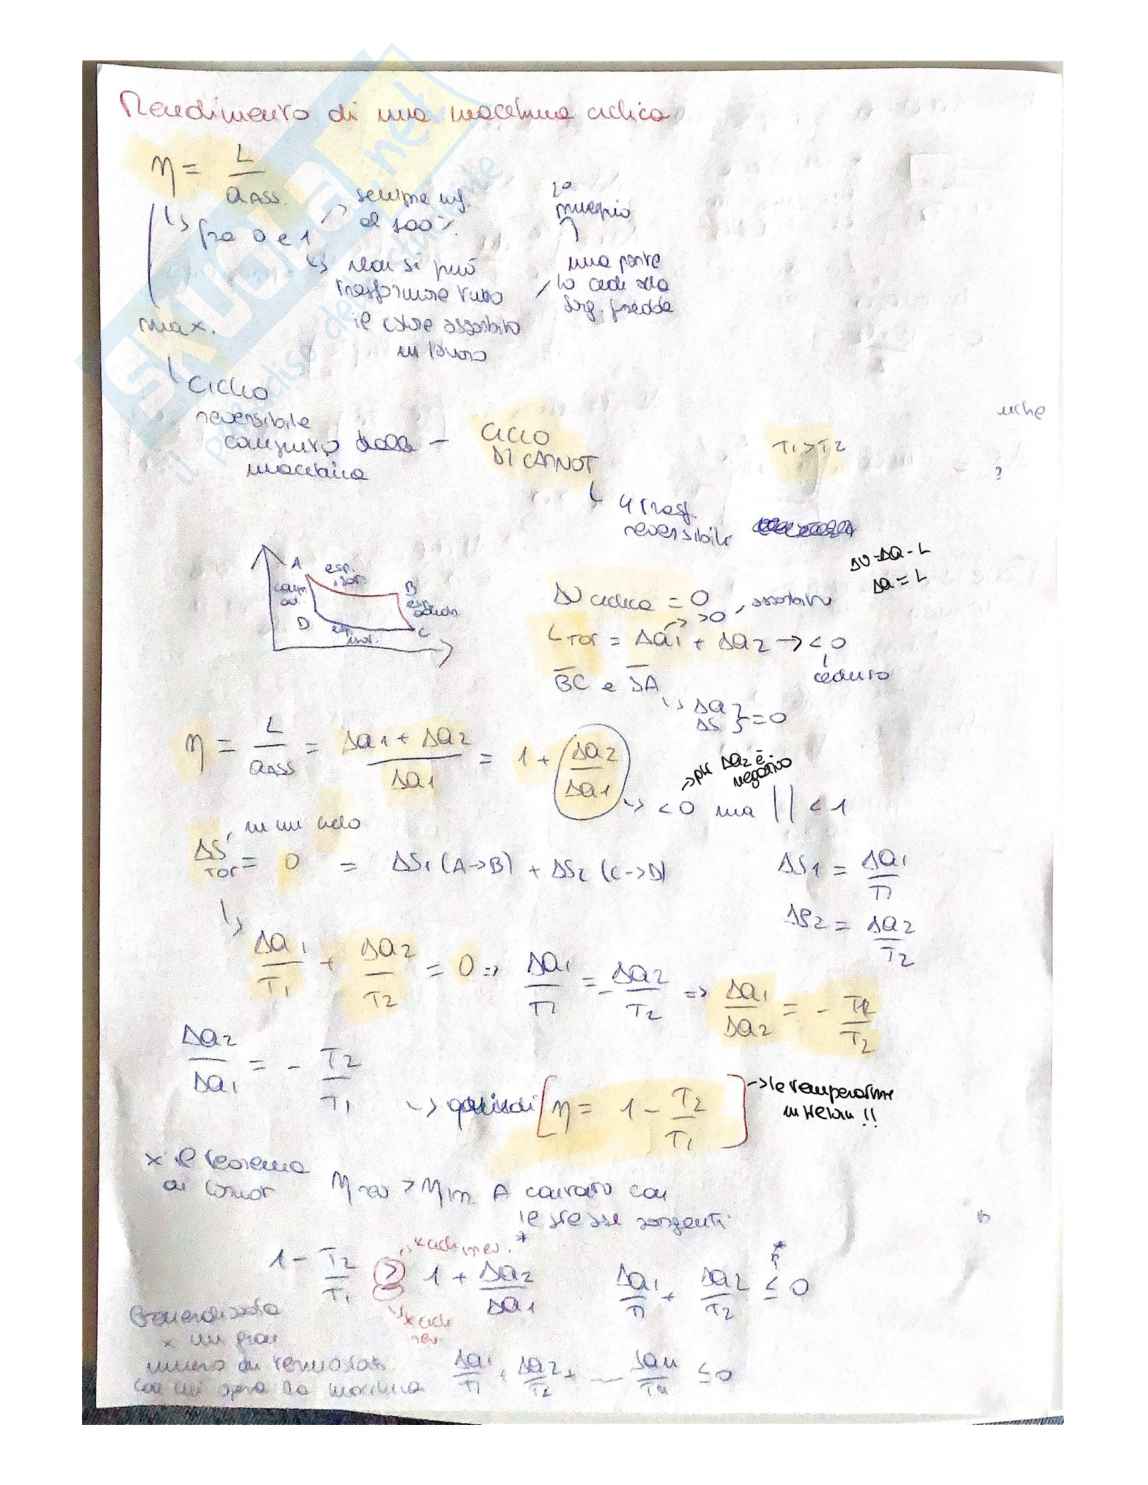 Rendimento di una macchina ciclica
η = L / Q ASS.
↳ fra 0 e 1
→ sempre inf. al 100%
↳ non si può
trasformare tutto
il calore assorbito
in lavoro
2°
principio
una parte
lo cede alla
sorg. fredda
max.
↳ CICLO
reversibile
compiuto dalla —
macchina
CICLO
DI CARNOT
T1 > T2
uche
?
↳ 4 trasf.
reversibile
ΔU = ΔQ - L
ΔQ = L
A
esp.
isot.
B
comp
ad.
esp.
adiab.
D
isot.
C
ΔU ciclica = 0
>0, assorbito
L TOT = ΔQ1 + ΔQ2 → <0
ceduto
BC e DA
↳ ΔQ
ΔS } = 0
η = L / Q ASS = ΔQ1 + ΔQ2 / ΔQ1 = 1 + ΔQ2 / ΔQ1
→ pk ΔQ2 è
negativo
↳ <0 ma | | < 1
, in un ciclo
ΔS TOT = 0 = ΔS1 (A→B) + ΔS2 (C→D)
ΔS1 = ΔQ1 / T1
ΔS2 = ΔQ2 / T2
↳ ΔQ1 / T1 + ΔQ2 / T2 = 0 => ΔQ1 / T1 = - ΔQ2 / T2 => ΔQ1 / ΔQ2 = - T1 / T2
ΔQ2 / ΔQ1 = - T2 / T1
↳ quindi [ η = 1 - T2 / T1 ] → le temperature
in Kelvin !!
x il teorema
di Carnot
η rev > η irr. A contatto con
le stesse sorgenti
x cicli irrev. *
1 - T2 / T1 ≥ 1 + ΔQ2 / ΔQ1
x cicli
rev
ΔQ1 / T1 + ΔQ2 / T2 ≤ 0
*
Generalizzata
x un gran
numero di termostati
con cui opera la macchina
ΔQ1 / T1 + ΔQ2 / T2 + ... ΔQn / Tn ≤ 0
SKUOLA.net
il paradiso dello studente